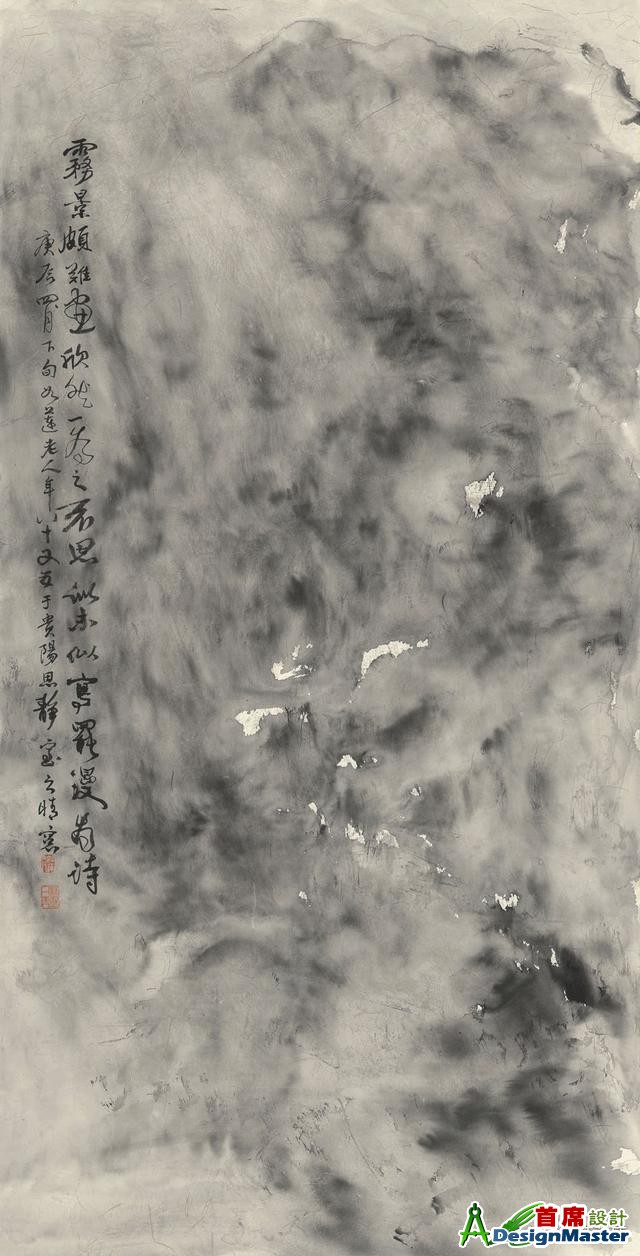 霧景頗難畫欣然一為之不思訛未似寫罷漫為詩
庚辰四月下旬如蓮老人年八十又五于貴陽思靜室之晴窗
首席設計
ADesignMaster